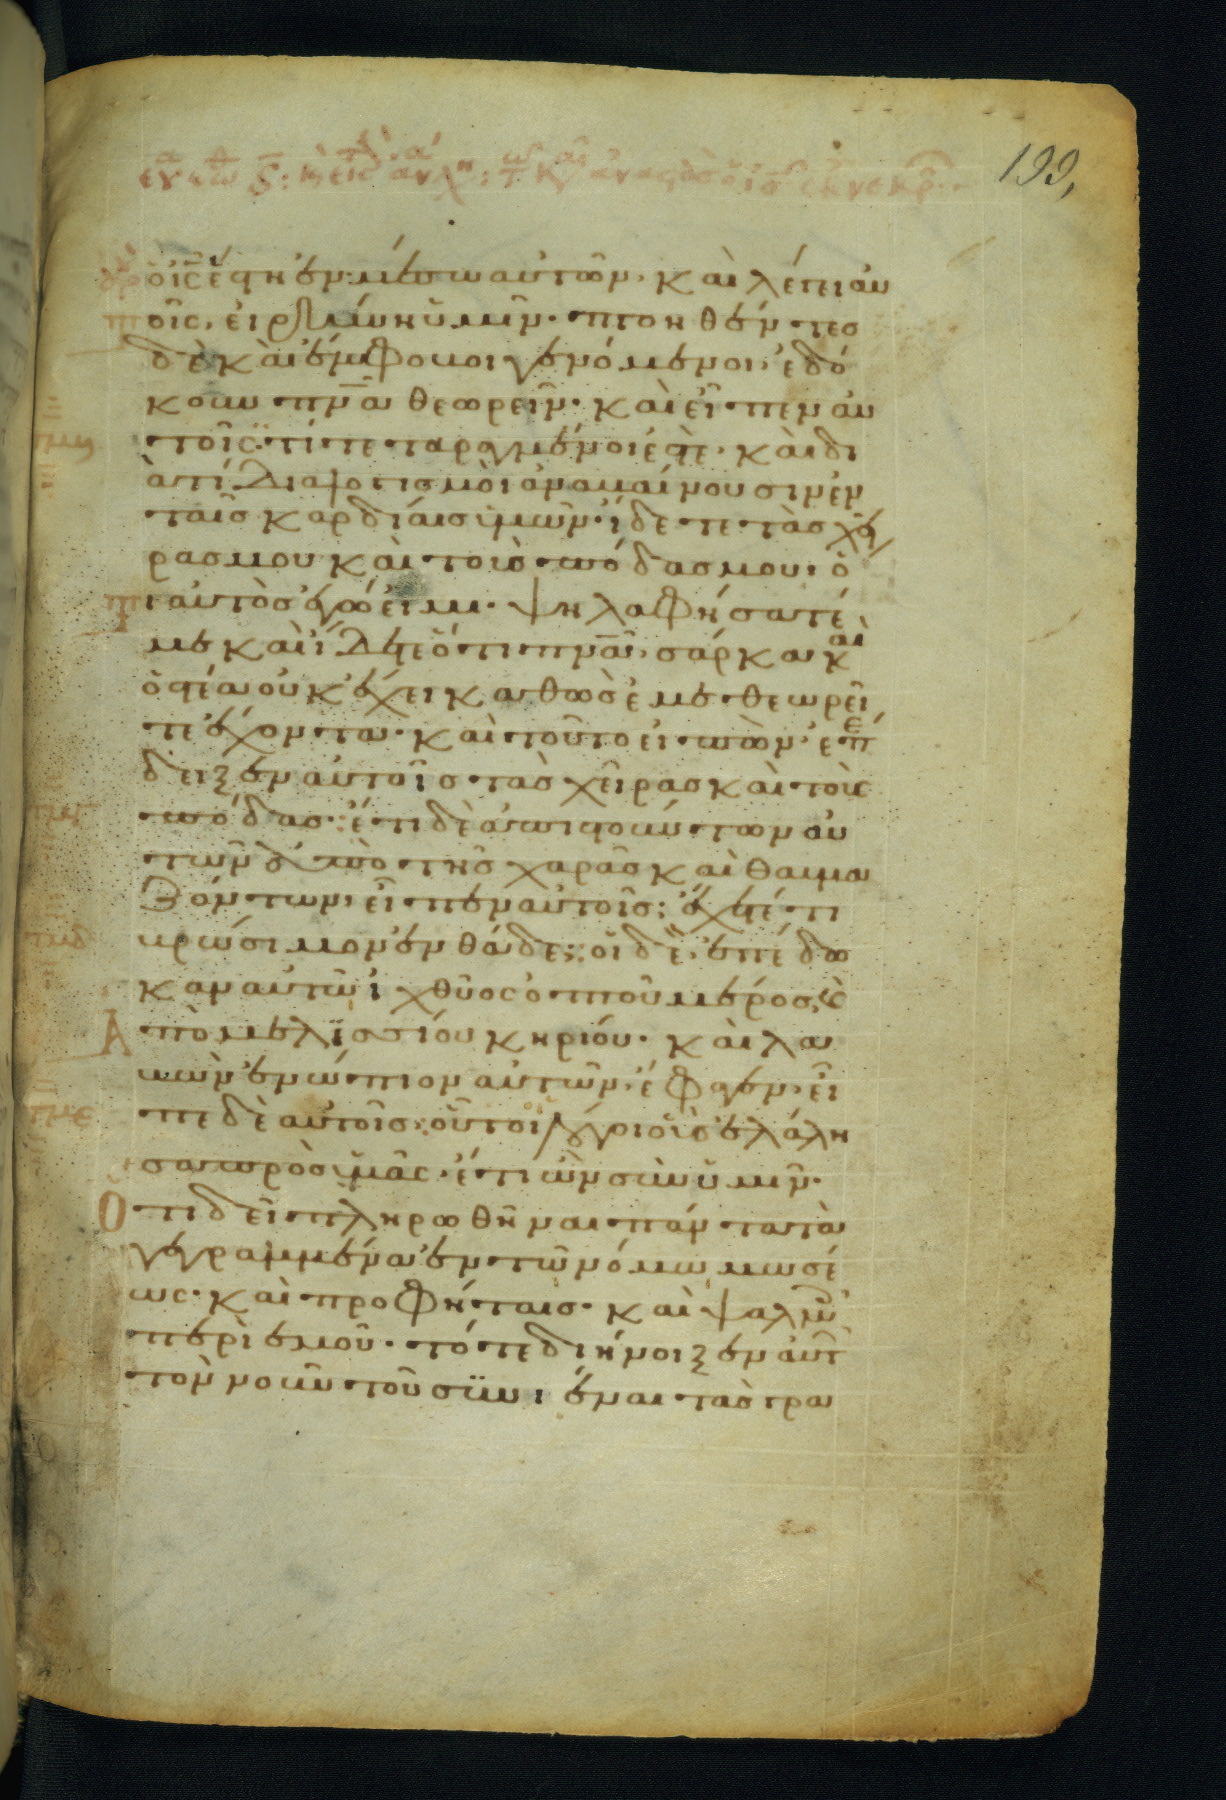 199,
ὁ ἰς ἔστη ἐν μέσω αὐτῶν· καὶ λέγει αυ
τοῖς, εἰρήνη ὑμῖν· πτοηθέντες
δὲ καὶ ἔμφοβοι γενόμενοι· ἐδό
κουν πνα θεωρεῖν· καὶ εἶπεν αυ
τοῖς· τί τεταραγμένοι ἐστὲ· καὶ δι
ατί διαλογισμοὶ ἀναβαίνουσιν ἐν
ταῖς καρδίαις ὑμῶν· ἴδετε τὰς χεῖ
ρας μου καὶ τοὺς πόδας μου· ὅ
τι αὐτὸς ἐγώ εἰμι· ψηλαφήσατέ
με καὶ ἴδετε ὅτι πνα σάρκα καὶ
ὀστέα οὐκ ἔχει καθὼς ἐμὲ θεωρεῖ
τε ἔχοντα· καὶ τοῦτο εἰπὼν, ἐπέ
δειξεν αὐτοῖς τὰς χεῖρας καὶ τοὺς
πόδας· ἔτι δὲ ἀπιστούντων αυ
τῶν ἀπὸ τῆς χαρᾶς καὶ θαυμα
ζόντων, εἶπεν αὐτοῖς· ἔχετέ τι
βρώσιμον ἐνθάδε; οἱ δὲ ἐπέδω
καν αὐτῶ ἰχθύος ὀπτοῦ μέρος, καὶ
ἀπὸ μελισσίου κηρίου· καὶ λα
βὼν ἐνώπιον αὐτῶν, ἔφαγεν· εἶ
πε δὲ αὐτοῖς· οὗτοι οἱ λόγοι οὓς ἐλάλη
σα πρὸς ὑμᾶς· ἔτι ὢν σὺν ὑμῖν·
Ὅτι δεῖ πληρωθῆναι πάντα τὰ
γεγραμμένα ἐν τῶ νόμω μωσέ
ως· καὶ προφήταις· καὶ ψαλμοῖς
περὶ ἐμοῦ· τότε διήνοιξεν αὐτ
τὸν νοῦν τοῦ συνιέναι τὰς γρα